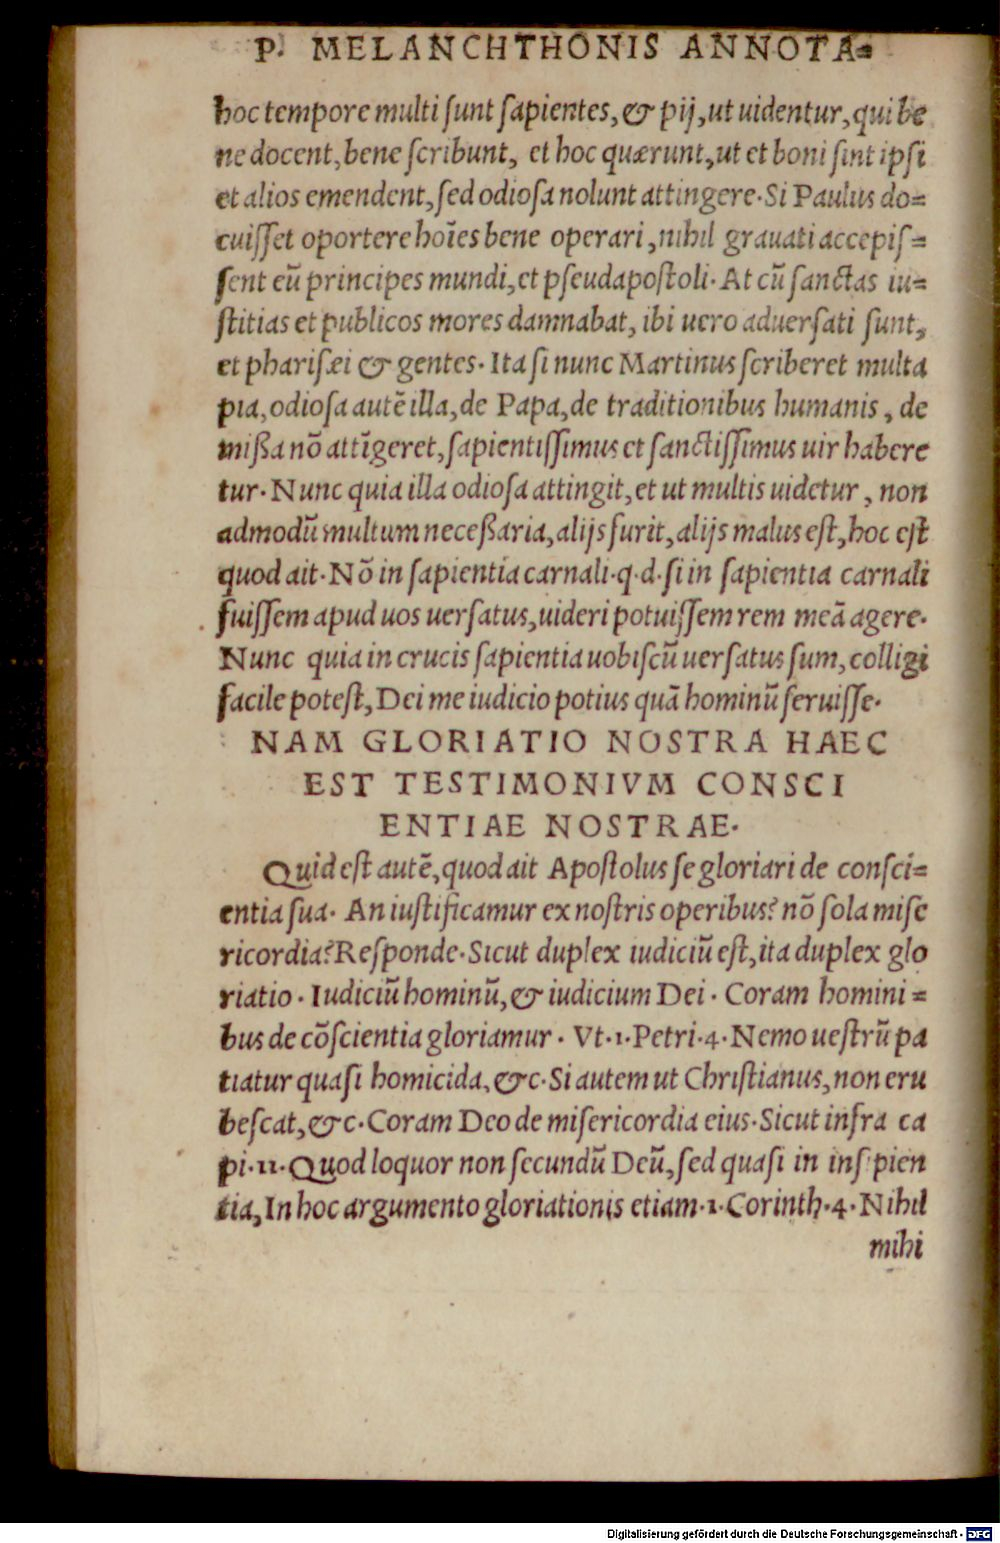 P. MELANCHTHONIS ANNOTA-
hoc tempore multi ſunt ſapientes, & pij, ut uidentur, qui be
ne docent, bene ſcribunt, et hoc quærunt, ut et boni ſint ipſi
et alios emendent, ſed odioſa nolunt attingere. Si Paulus do-
cuiſſet oportere hoīes bene operari, nihil grauati accepiſ-
ſent eū principes mundi, et pſeudapoſtoli. At cū ſanctas iu-
ſtitias et publicos mores damnabat, ibi uero aduerſati ſunt,
et phariſæi & gentes. Ita ſi nunc Martinus ſcriberet multa
pia, odioſa autē illa, de Papa, de traditionibus humanis, de
mißa nō attīgeret, ſapientiſſimus et ſanctiſſimus uir habere
tur. Nunc quia illa odioſa attingit, et ut multis uidetur, non
admodū multum neceßaria, alijs furit, alijs malus eſt, hoc eſt
quod ait. Nō in ſapientia carnali. q. d. ſi in ſapientia carnali
fuiſſem apud uos uerſatus, uideri potuiſſem rem meā agere.
Nunc quia in crucis ſapientia uobiſcū uerſatus ſum, colligi
facile poteſt, Dei me iudicio potius quā hominū ſeruiſſe.
NAM GLORIATIO NOSTRA HAEC
EST TESTIMONIVM CONSCI
ENTIAE NOSTRAE.
Quid eſt autē, quod ait Apoſtolus ſe gloriari de conſci-
entia ſua. An iuſtificamur ex noſtris operibus? nō ſola miſe
ricordia? Reſponde. Sicut duplex iudiciū eſt, ita duplex glo
riatio. Iudiciū hominū, & iudicium Dei. Coram homini-
bus de cōſcientia gloriamur. Vt. 1. Petri. 4. Nemo ueſtrū pa
tiatur quaſi homicida, &c. Si autem ut Chriſtianus, non eru
beſcat, &c. Coram Deo de miſericordia eius. Sicut infra ca
pi. 11. Quod loquor non ſecundū Deū, ſed quaſi in inſipien
tia, In hoc argumento gloriationis etiam. 1. Corinth. 4. Nihil
mihi
Digitalisierung gefördert durch die Deutsche Forschungsgemeinschaft - DFG